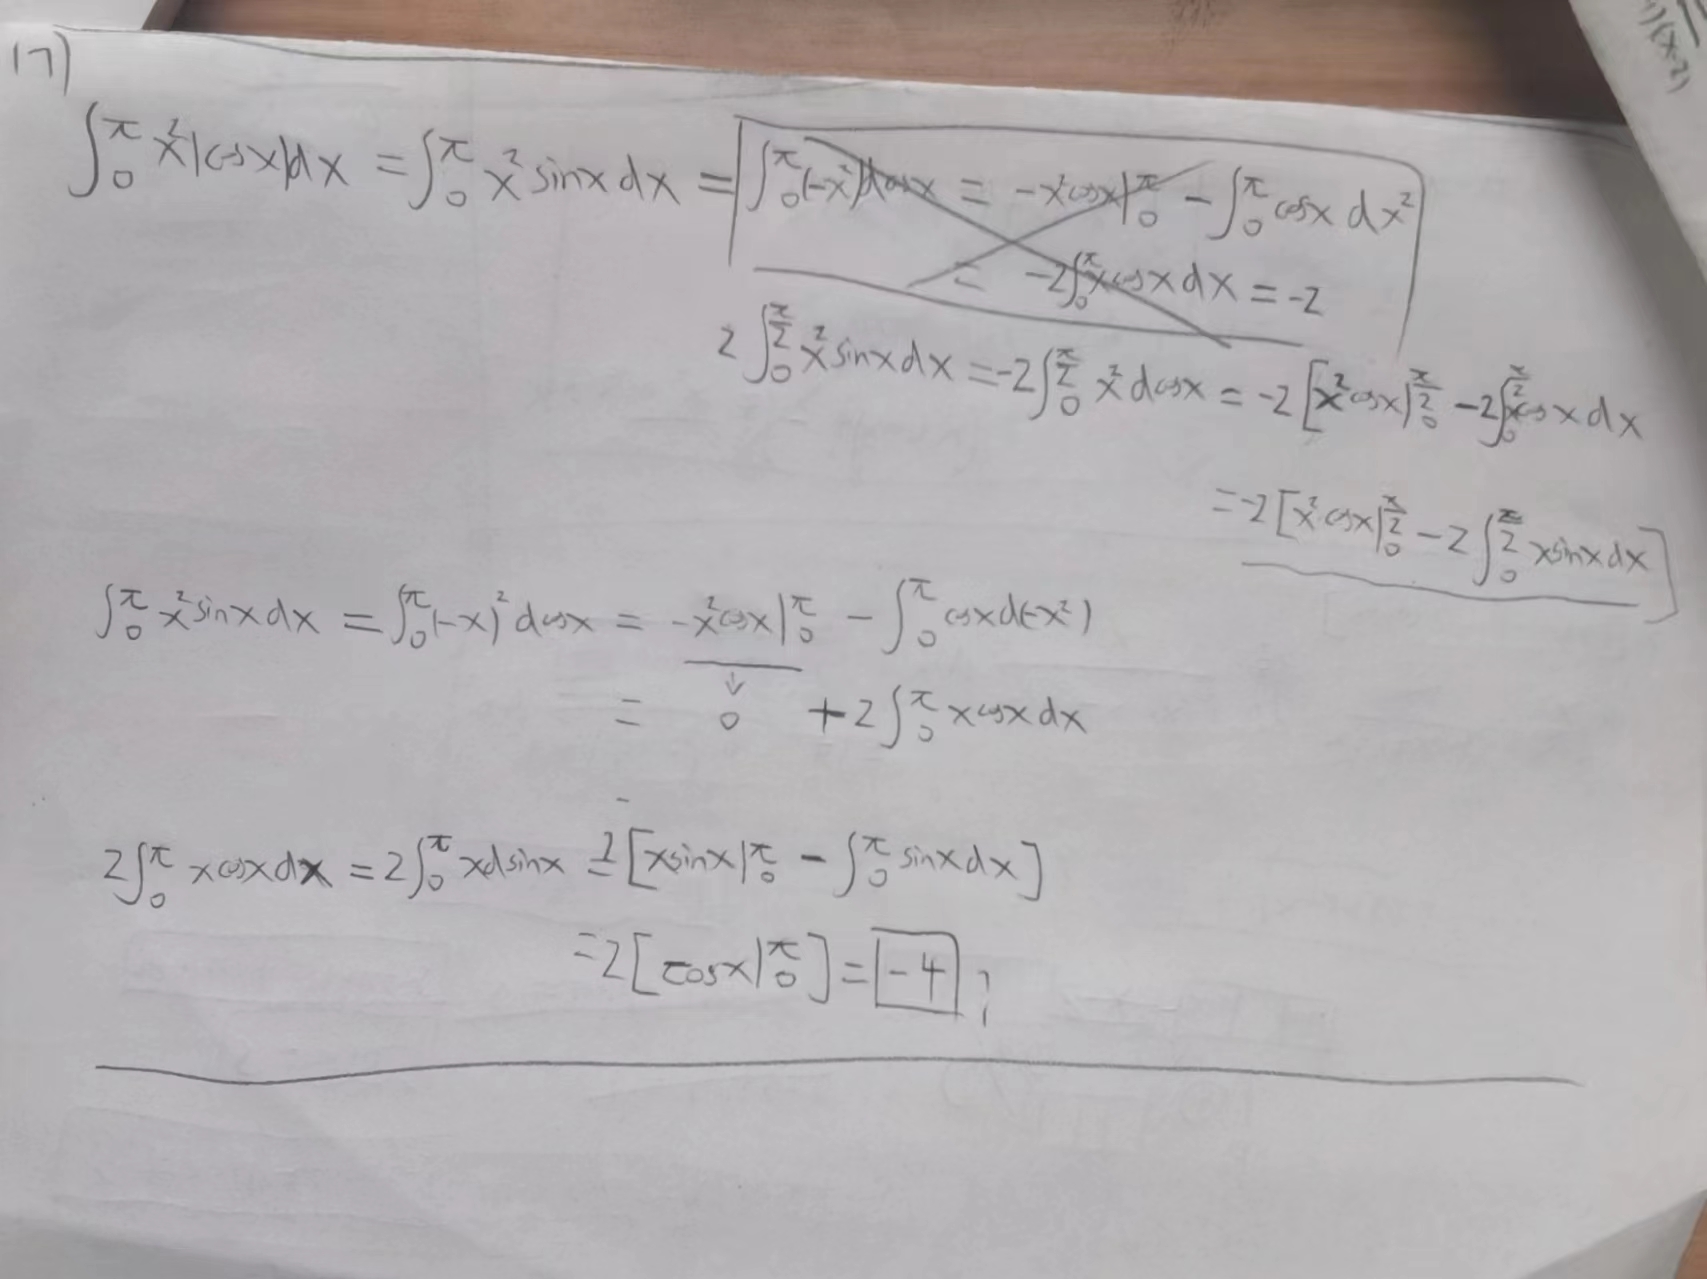 17)
∫₀^π x²|cosx|dx = ∫₀^π x² sinx dx = ∫₀^π (-x²)dcosx = -x²cosx|₀^π - ∫₀^π cosx dx²
= -2∫₀^π xcosx dx = -2
2∫₀^(π/2) x² sinx dx = -2∫₀^(π/2) x² dcosx = -2[x²cosx|₀^(π/2) - 2∫₀^(π/2) xcosx dx
= -2[x²cosx|₀^(π/2) - 2∫₀^(π/2) xsinx dx]
∫₀^π x² sinx dx = ∫₀^π (-x)² dcosx = -x²cosx|₀^π - ∫₀^π cosx d(-x²)
↓
= 0 + 2∫₀^π xcosx dx
2∫₀^π xcosx dx = 2∫₀^π xdsinx = 2[xsinx|₀^π - ∫₀^π sinx dx]
= 2[cosx|₀^π] = -4
(x-2)